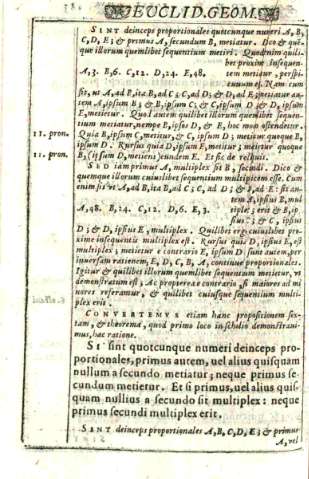 EUCLID. GEOM.
SINT deinceps proportionales quotcunque numeri A, B,
C, D, E; & primus A, secundum B, metiatur. Dico & quẽ-
que illorum quemlibet sequentem metiri. Quod enim quili-
bet proxime insequen-
A, 3. B, 6. C, 12. D, 24. E, 48,
tem metiatur, perspi-
cuum est. Nam cum
sit, ut A, ad B, ita B, ad C; C, ad D; & D, ad E; metiatur au-
tem A, ipsum B; & B, ipsum C; & C, ipsum D; & D, ipsum
E, metietur. Quod autem quilibet illorum quemlibet sequen-
tem metiatur, nempe B, ipsos D, & E, hoc modo ostendetur.
11. pron.
Quia B, ipsum C, metitur, & C, ipsum D; metitur quoque B,
ipsum D. Rursus quia D, ipsum E, metitur; metitur quoque
11. pron.
B, ipsum D, metiens, eundem E. Et sic de reliquis.
SED iam primus A, multiplex sit B, secundi. Dico &
quemque illorum cuiuslibet sequentium multiplicem esse. Cum
enim sit ut A, ad B, ita B, ad C; C, ad D; & D, ad E: sit au-
tem A, ipsius B, mul
A, 48. B, 24. C, 12. D, 6. E, 3.
tiplex; erit & B, ip
sius C; & C, ipsius
D; & D, ipsius E, multiplex. Quilibet ergo cuiuslibet pro-
xime insequentis multiplex est. Rursus quia D, ipsius E, est
multiplex; metietur è contrario E, ipsum D. Sunt autem, per
inversam rationem, E, D, C, B, A, continue proportionales.
Igitur & quilibet illorum quemlibet sequentem metietur, ut
demonstratum est; Ac propterea è contrario, si maiores ad mi
nores referamur, & quilibet cuiusque sequentium multi-
plex erit.
CONVERTEMUS etiam hanc propositionem sex-
tam, & theorema, quod primo loco in scholio demonstraui-
mus, hac ratione.
SI sint quotcunque numeri deinceps pro-
portionales, primus autem, uel alius quisquam
nullum a secundo metiatur; neque primus se-
cundum metietur. Et si primus, uel alius quis-
quam nullius a secundo sit multiplex: neque
primus secundi multiplex erit.
SINT deinceps proportionales A, B, C, D, E; & primus
A, vel